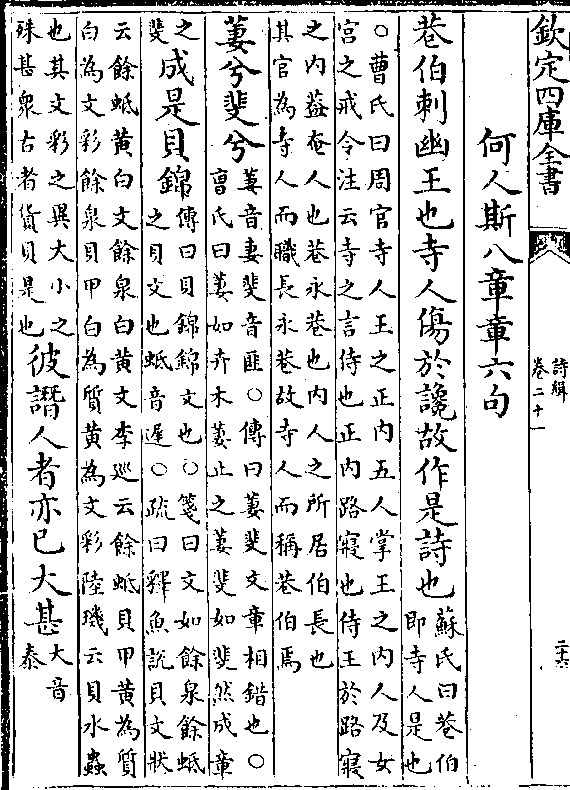 欽定四庫全書
詩緝
卷二十一
二十六
何人斯八章章六句
巷伯刺幽王也寺人傷於讒故作是詩也
蘇氏曰巷伯
即寺人是也
○曹氏曰周官寺人王之正內五人掌王之內人及女
宮之戒令注云寺之言侍也正內路寢也侍王於路寢
之內葢奄人也巷永巷也內人之所居伯長也
其官為寺人而職長永巷故寺人而稱巷伯焉
萋兮斐兮
萋音妻斐音匪○傳曰萋斐文章相錯也○
曺氏曰萋如卉木萋止之萋斐如斐然成章
之
斐
成是貝錦
傳曰貝錦錦文也○箋曰文如餘泉餘蚳
之貝文也蚳音遲○疏曰釋魚說貝文狀
云餘蚳黃白文餘泉白黃文李廵云餘蚳貝甲黃為質
白為文彩餘泉貝甲白為質黃為文彩陸璣云貝水蟲
也其文彩之異大小之
殊甚衆古者貨貝是也
彼譖人者亦已大甚
大音
泰